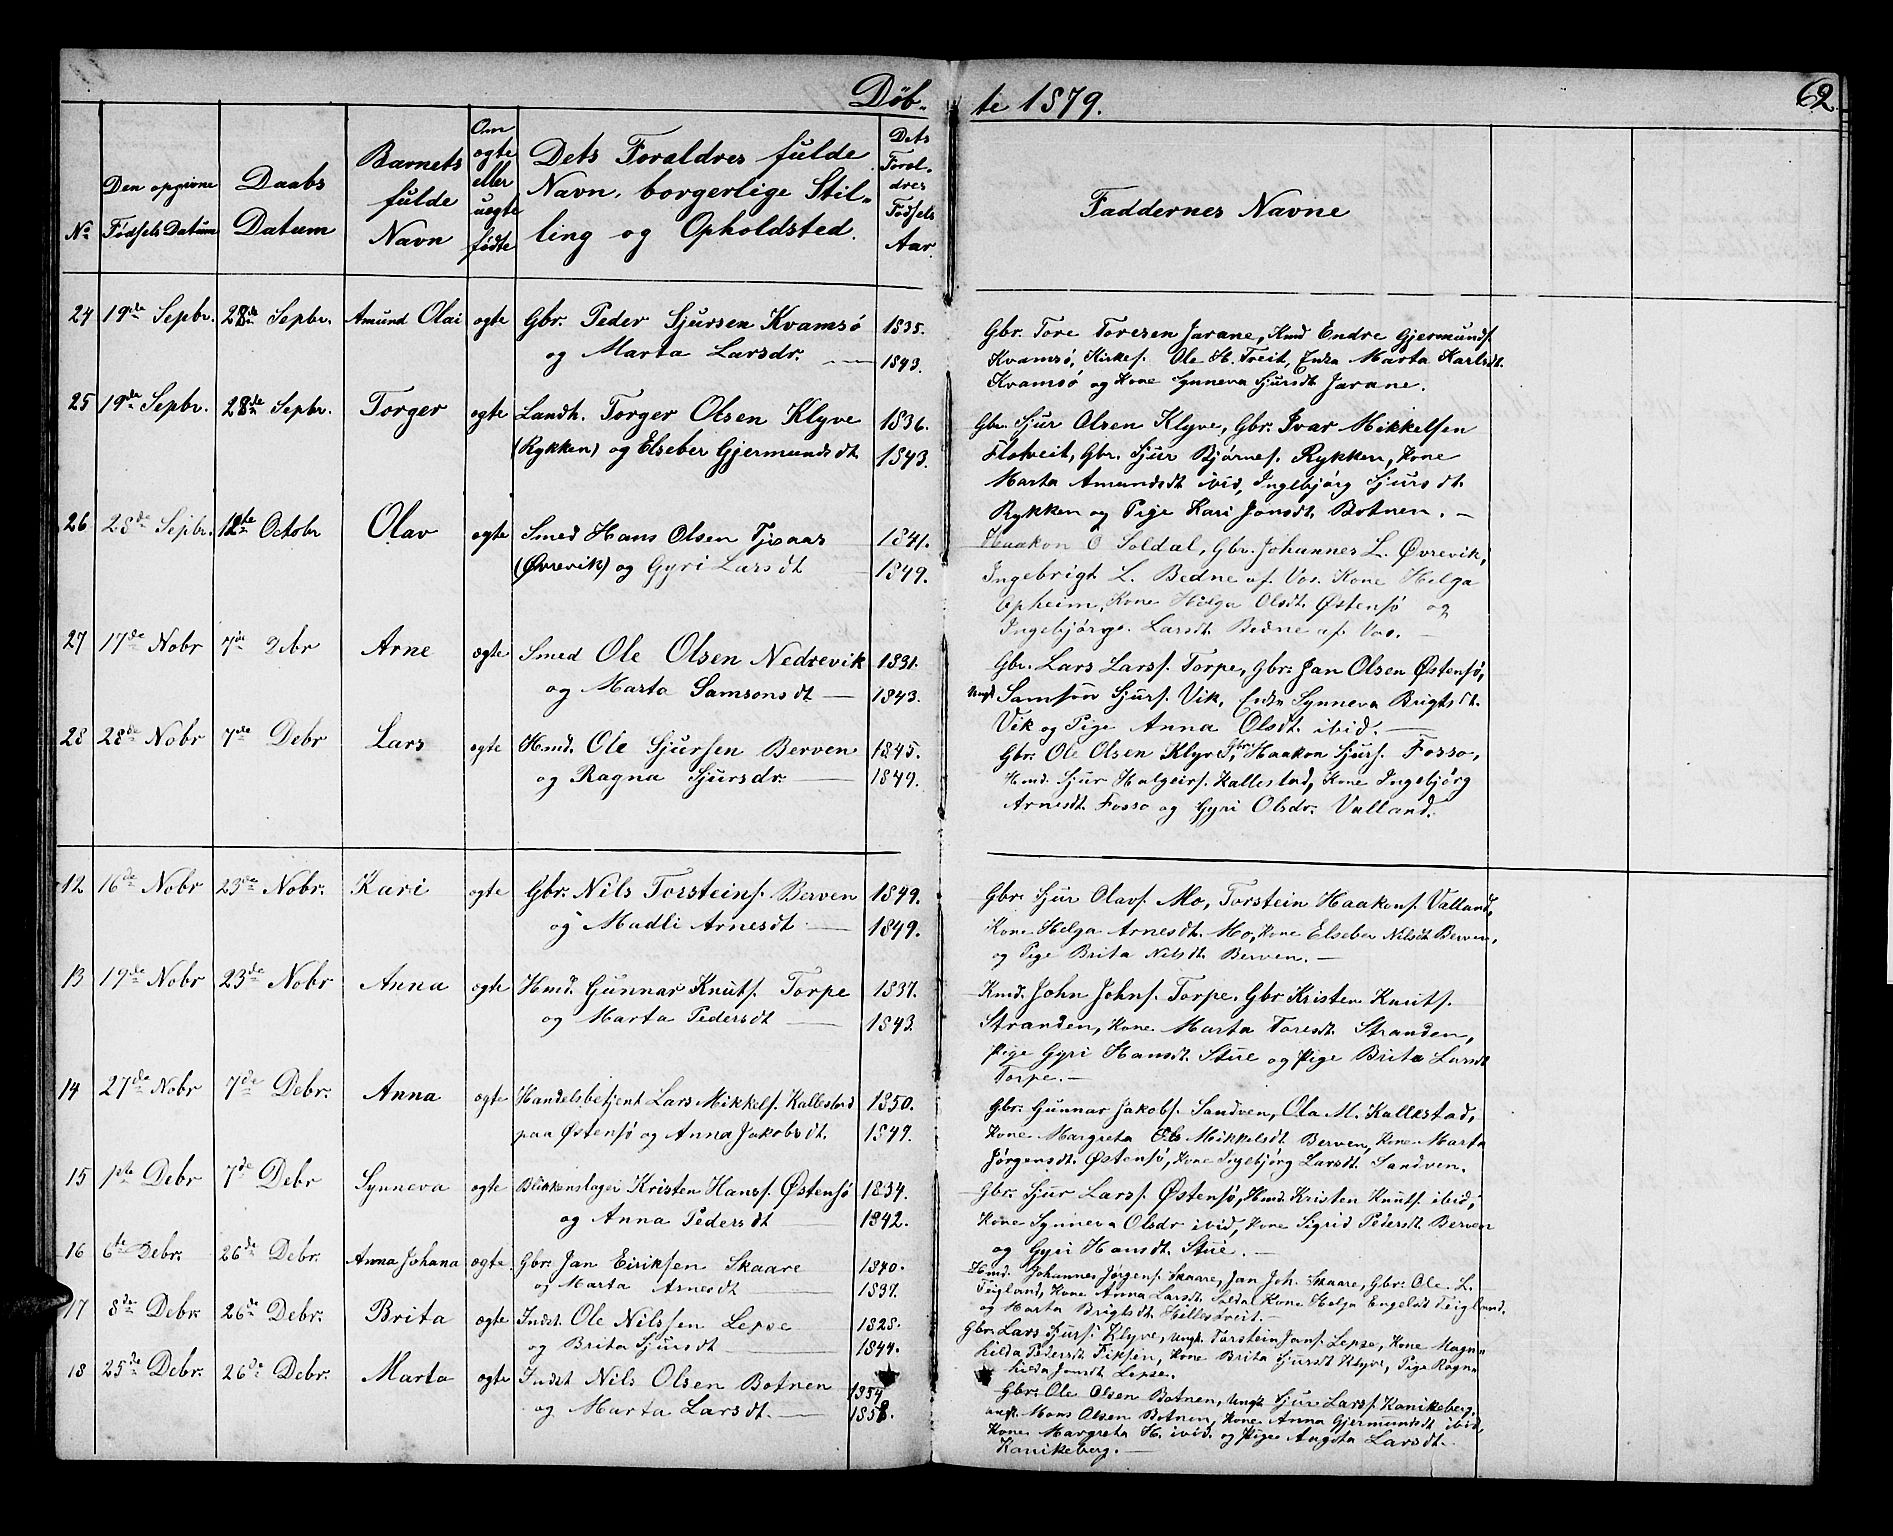 Døb- te 1879. 62
No Den opgivne Fødsels Datum Daabs Datum Barnets fulde Navn Om ægte eller uægte fødte Dets Forældres fulde Navn, borgerlige Stilling og Opholdsted. Dets Forældres Fødsels Aar. Faddernes Navne
24 19de Sepbr. 28de Sepbr. Amund Olai ægte Gbr. Peder Sjursen Kvamsø 1835.
og Marta Larsdr. — 1843.
Gbr. Tore Toresen Jarane, Kmd Endre Gjermunds.
Kvamsø, Kirkes. Ole H. Treit, Enke Marta Karlsdt.
Kvamsø og Kone Synneva Sjursdt Jarane.
25 19de Sepbr. 28de Sepbr. Torger ægte Landh. Torger Olsen Klyve 1836.
(Rykken) og Elseber Gjermundsdt 1843.
Gbr. Sjur Olsen Klyve, Gbr. Ivar Mikkelsen
Flotveit, Gbr. Sjur Bjørnes. Rykken, Kone
Marta Amundsdt ibid, Ingebjørg Sjursdt.
Rykken og Pige Kari Jonsdt. Botnen. —
26 28de Sepbr. 12te Octobr Olav ægte Smed Hans Olsen 1841.
(Øvrevik) og Gyri Larsdt 1849.
Haakon O Soldal, Gbr. Johannes L. Øvrevik,
Ingebrigt L. Bedne af Vos. Kone Helga
Opheim, Kone Helga Olsdt. Østensø og
Ingebjørg Larsdt. Bedne af Vos. —
27 17de Nobr 7de Dbr Arne ægte Smed Ole Olsen Nedrevik 1831.
og Marta Samsonsdt — 1843.
Gbr. Lars Larss. Torpe, Gbr: Jan Olsen Østensø,
Ungk Samson Sjurs. Vik, Enke Synneva Brigtsdt.
Vik og Pige Anna Olsdt. ibid. —
28 28de Nobr 7de Debr Lars ægte Hmd. Ole Sjursen Berven 1845.
og Ragna Sjursdr. — 1849.
Gbr. Ole Olsen Klyve, Gbr. Haakon Sjurs. Fosso,
Hmd. Sjur Halgeirs. Kallestad, Kone Ingebjørg
Arnesdt. Fosso og Gyri Olsdr. Valland.
12 16de Nobr 23de Nobr. Kari ægte Gbr. Nils Torsteins. Berven 1849.
og Madli Arnesdt. — 1849.
Gbr. Sjur Olavs. Mo, Torstein Haakons. Valland,
Kone Helga Arnesdt. Mo, Kone Elseber Nilsdt Berven,
og Pige Brita Nilsdt. Berven. —
13 19de Nobr 23de Nobr Anna ægte Hmd. Gunnar Knuts. Torpe 1837.
og Marta Pedersdt — 1843.
Kmd. John Johns. Torpe, Gbr Kristen Knuts.
Stranden, Kone Marta Toresdt. Stranden,
Pige Gyri Hansdt. Stue og Pige Brita Larsdt
Torpe. —
14 27de Nobr 7de Debr. Anna ægte Handelsbetjent Lars Mikkels. Kallestad 1850.
paa Østensø og Anna Jakobsdt. 1847.
Gbr. Gunnar Jakobs. Sandven, Ola M. Kallestad,
Kone Margreta Mikkelsdt Berven, Kone Marta
Jørgensdt. Østensø, Kone Ingebjørg Larsdt. Sandven.
15 1ste Debr 7de Debr Synneva ægte Blikkenslager Kristen Hanss. Østensø 1834.
og Anna Pedersdt — 1842.
Gbr: Sjur Larss. Østensø, Hmd. Kristen Knuts. ibid,
Kone Synneva Olsdr ibid, Kone Sigrid Pedersdt Berven
og Gyri Hansdt. Stue. —
16 6te Debr. 26de Debr. Anna Johana ægte. Gbr. Jan Eiriksen Skaare 1840.
og Marta Arnesdt — 1837.
Hmd. Johannes Jørgens. Skaare, Jan Joh. Skaare, Gbr: Ole L.
Teigland, Kone Anna Larsdt. Soldal Kone Helga Engelsdt Teigland.
og Marta Brigtsdt. —
17 8de Debr. 26de Debr. Brita ægte Indst. Ole Nilssen Lepse — 1828.
og Brita Sjursdt — 1844.
Gbr. Lars Sjurs. Klyve, Ungk. Torstein Jans. Lepse, Kone Magn-
hilda Pedersdt Fiksen, Kone Brita Sjursdt Klyve, Pige Ragn-
hilda Jonsdt Lepse.
18 25de Debr. 26de Debr. Marta ægte Indst Nils Olsen Botnen 1854
og Marta Larsdt. — 1858.
Gbr. Ole Olsen Botnen, Ungk Sjur Larss. Kanikeberg.
Ungk. Mons Olsen Botnen, Kone Anna Gjermundsdt ibid,
Kone Margreta H. ibid. og Pige Angsta Larsdt.
Kanikeberg. —